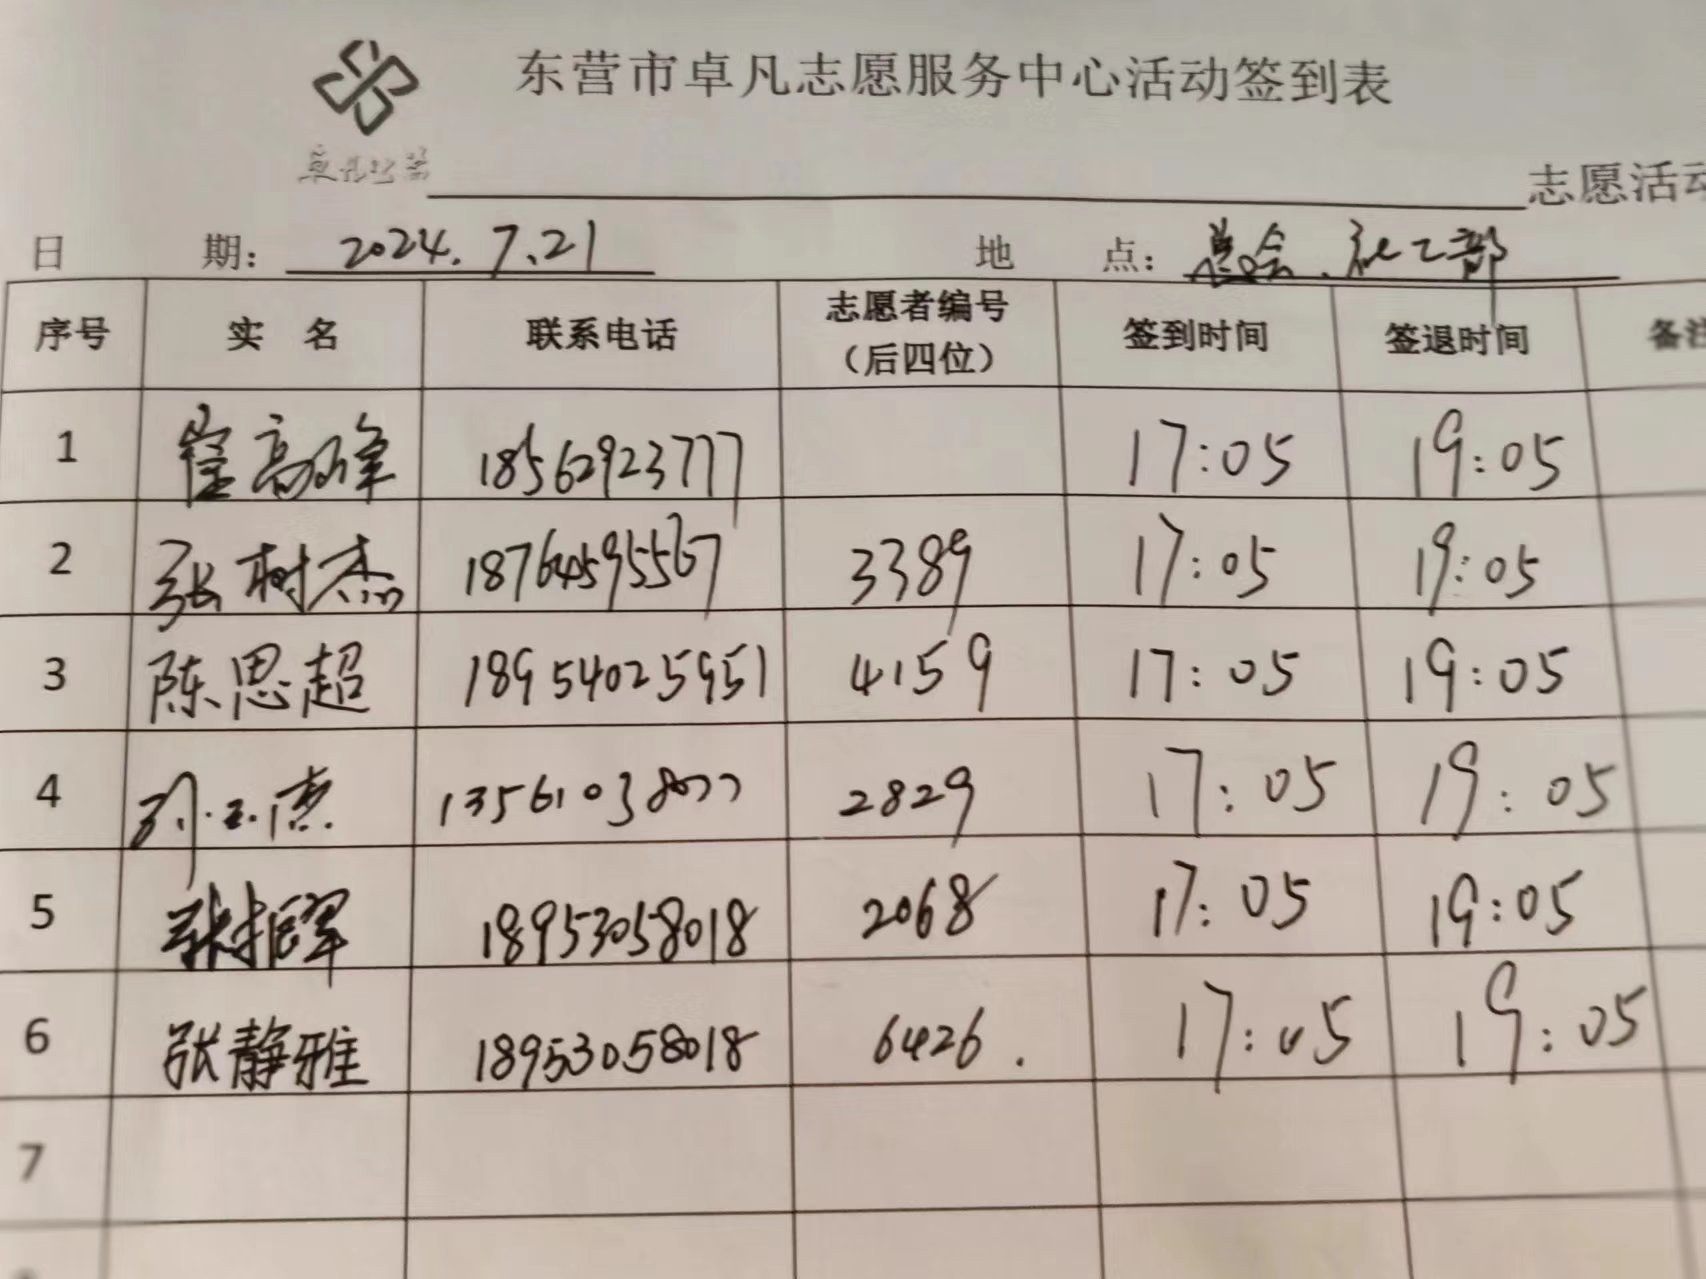 东营市卓凡志愿服务中心活动签到表
卓凡公益
志愿活动
日 期: 2024.7.21 地 点: 总会、社工部
序号 实 名 联系电话 志愿者编号(后四位) 签到时间 签退时间 备注
1 崔高峰 18562923777 17:05 19:05
2 张树杰 18764595567 3389 17:05 19:05
3 陈思超 18954025951 4159 17:05 19:05
4 13561038077 2829 17:05 19:05
5 18953058018 2068 17:05 19:05
6 张静雅 18953058018 6426. 17:05 19:05
7